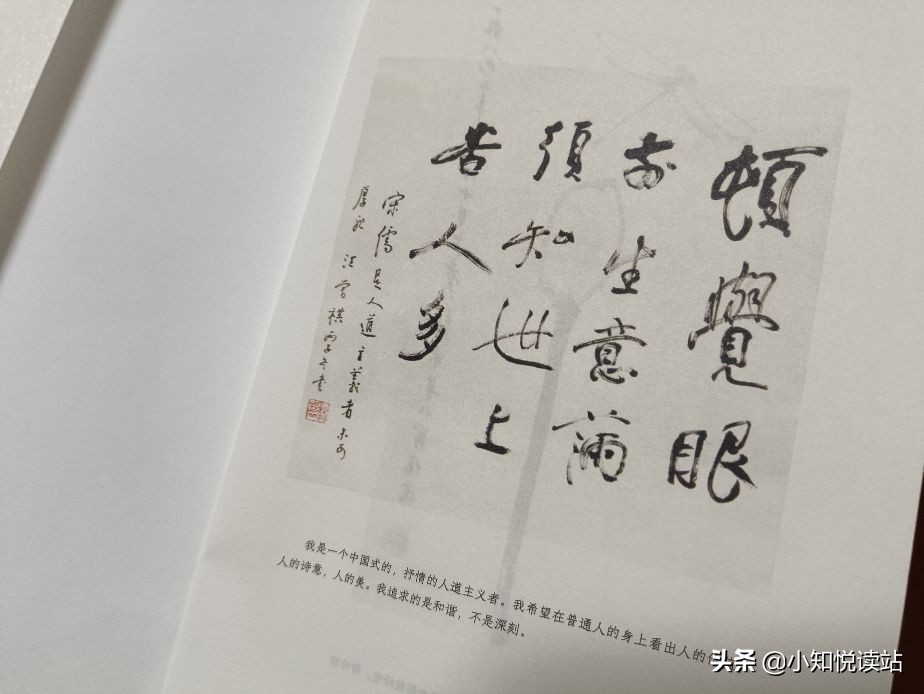 頓覺眼
前生意滿
須知世上
苦人多
宋儒是人道主義者未可
厚非 汪曾祺 丙子冬書
我是一个中国式的，抒情的人道主义者。我希望在普通人的身上看出人的
人的诗意，人的美。我追求的是和谐，不是深刻。
头条 @小知悦读站